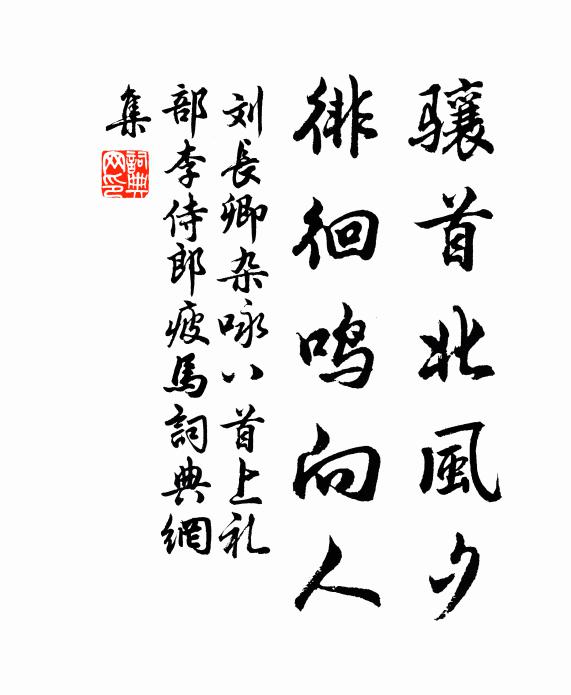 骧首北風夕
徘徊鸣向人
刘長卿杂咏八首上礼
部李侍郎疲馬詞典網
集
詞典网印